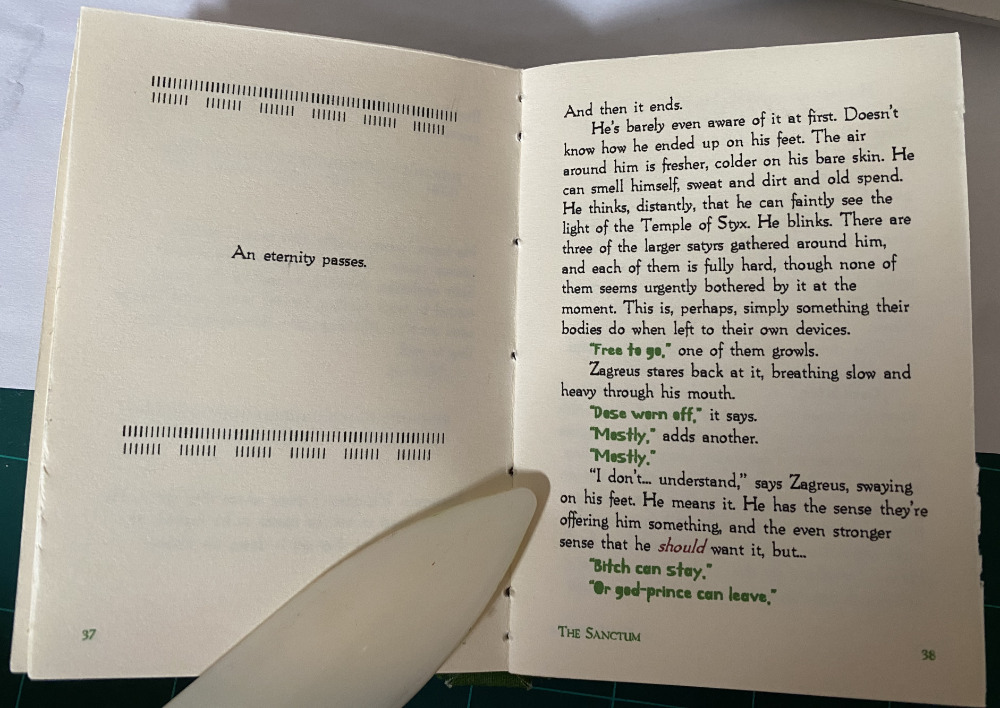 An eternity passes.
37
And then it ends.
He's barely even aware of it at first. Doesn't
know how he ended up on his feet. The air
around him is fresher, colder on his bare skin. He
can smell himself, sweat and dirt and old spend.
He thinks, distantly, that he can faintly see the
light of the Temple of Styx. He blinks. There are
three of the larger satyrs gathered around him,
and each of them is fully hard, though none of
them seems urgently bothered by it at the
moment. This is, perhaps, simply something their
bodies do when left to their own devices.
"Free to go," one of them growls.
Zagreus stares back at it, breathing slow and
heavy through his mouth.
"Dose worn off," it says.
"Mostly," adds another.
"Mostly."
"I don't... understand," says Zagreus, swaying
on his feet. He means it. He has the sense they're
offering him something, and the even stronger
sense that he should want it, but...
"Bitch can stay."
"Or god-prince can leave,"
THE SANCTUM
38